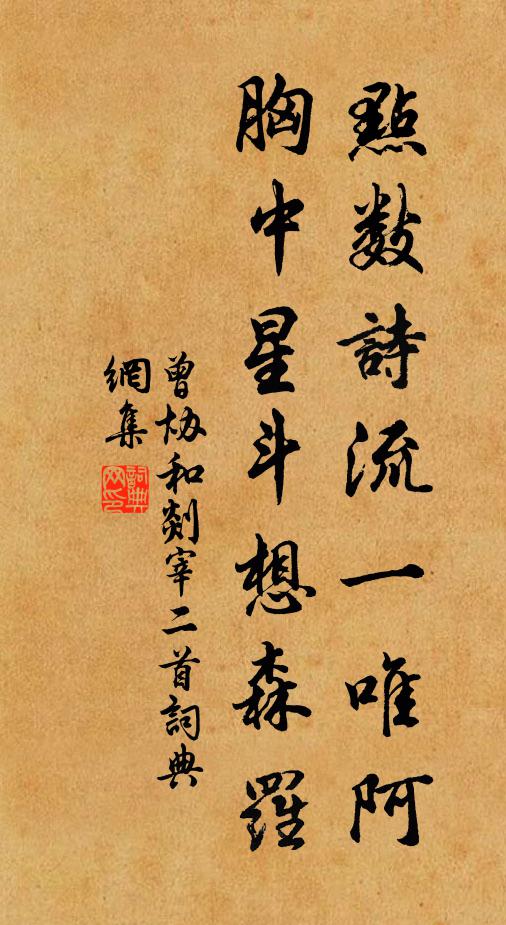 點數詩流一唯阿
胸中星斗想森羅
曾協和剡宰二首詞典
網集
詞典網印